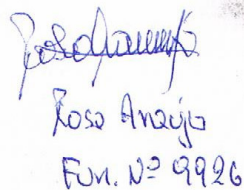 Rosa Araújo
Fun. Nº 9926